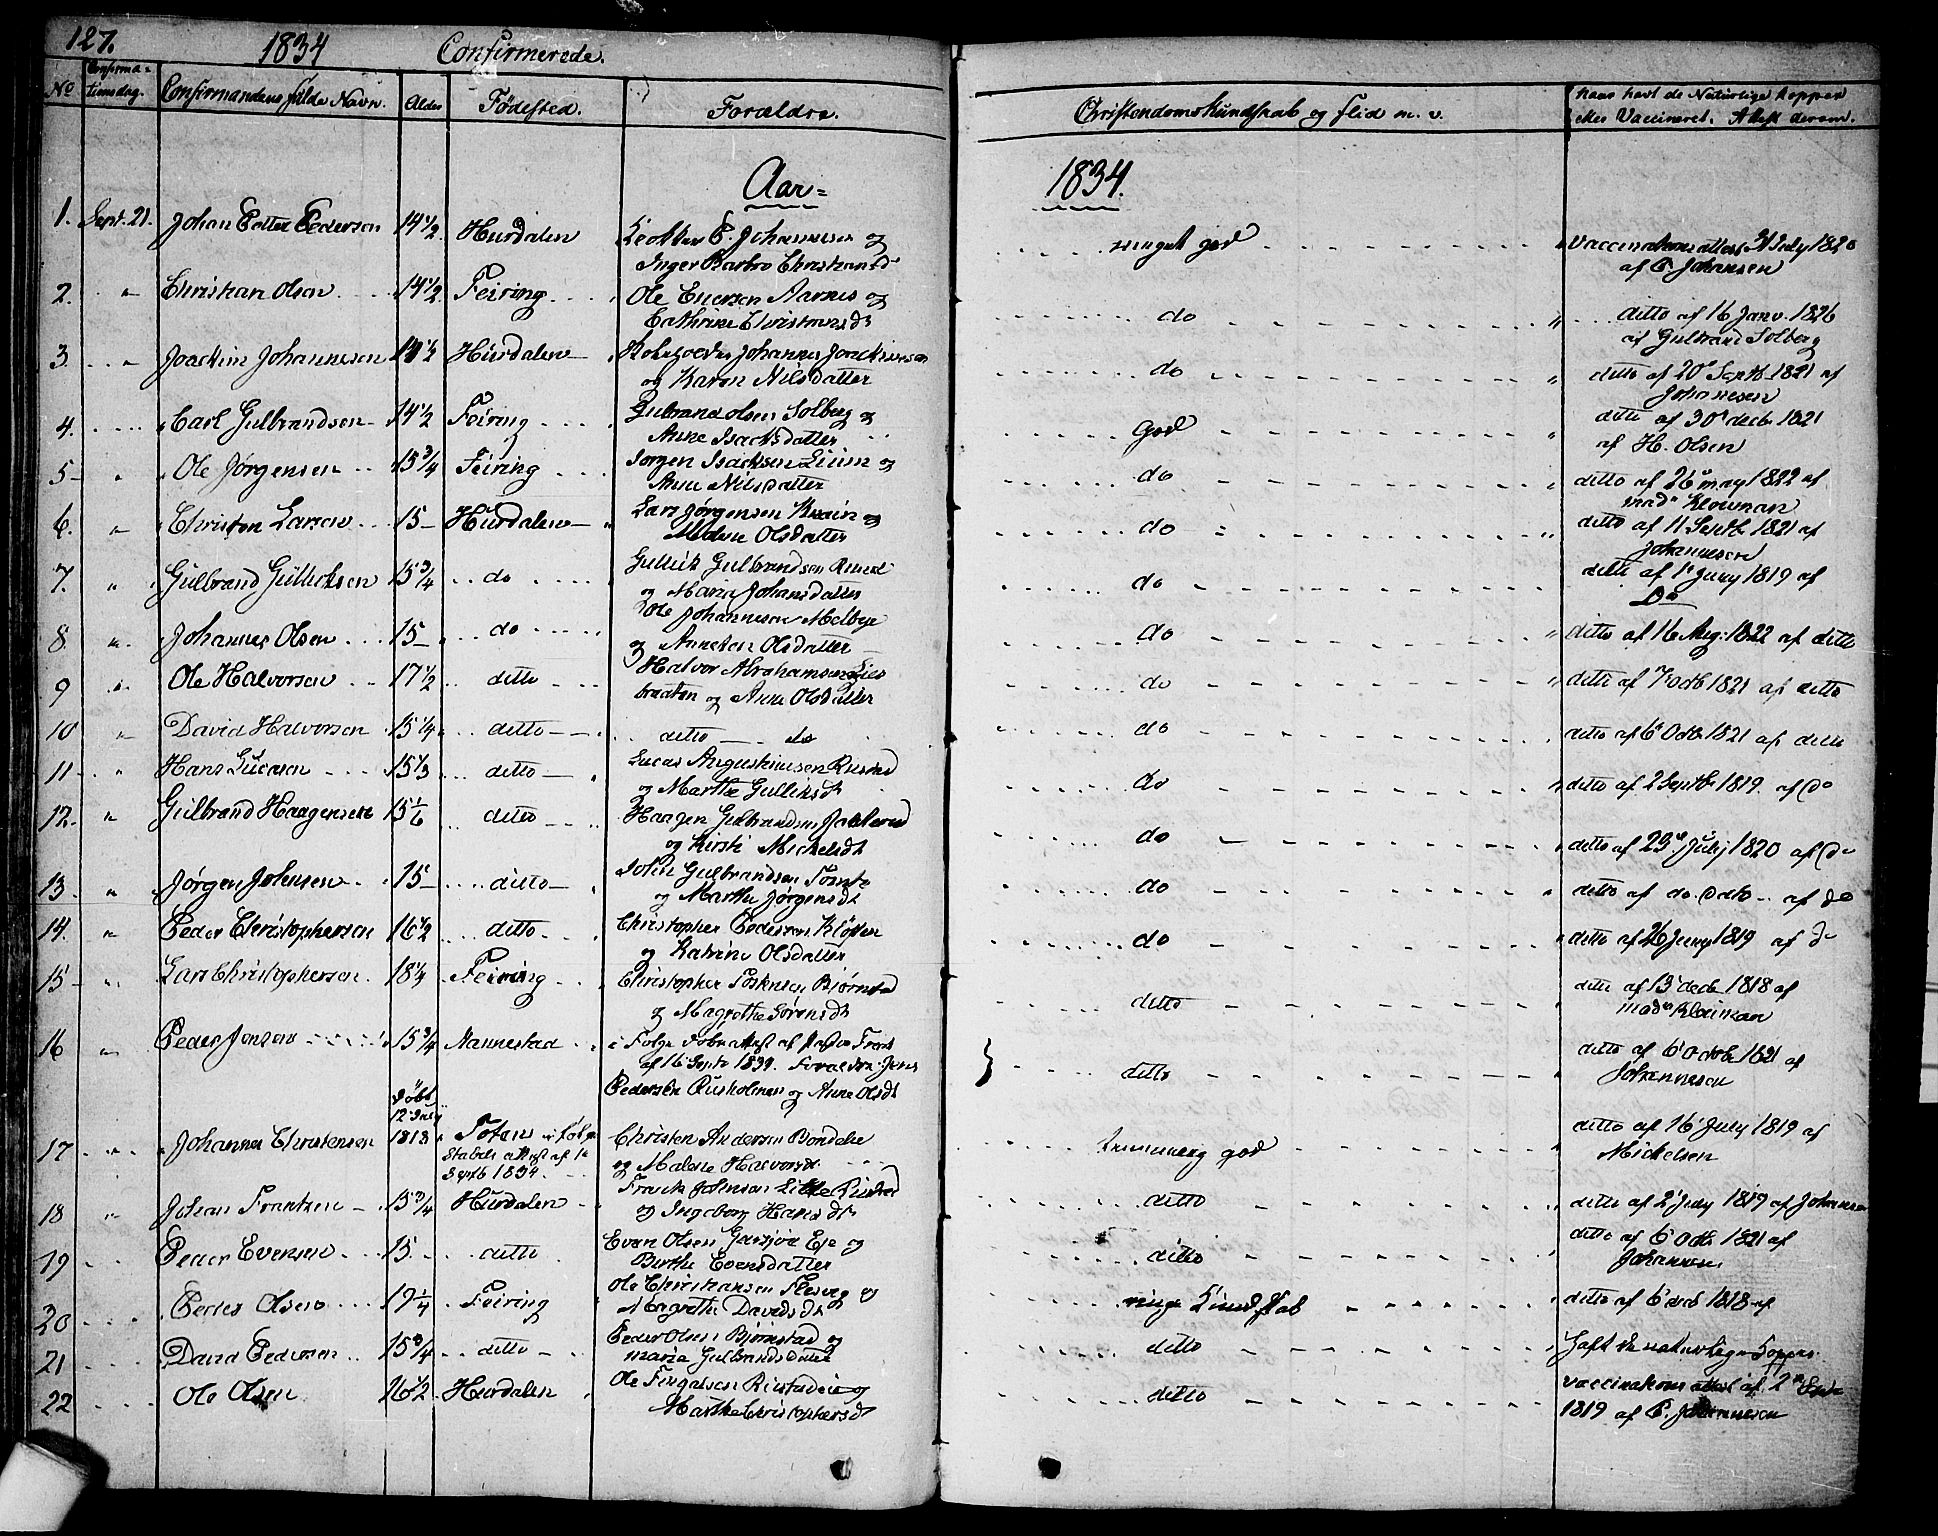 127. 1834 Confirmerede.
No Confirma= tionsdag. Confirmandens fulde Navn. Alder Fødested. Forældre. Christendomskundskab og Flid m. v. haar havt de Naturlige Kopper
eller Vaccineret. Attest derom.
Aar= 1834.
1. Sept. 21. Johan Petter Pedersen 14 1/2 Hurdalen P. Johannesen og meget god Vaccinations attest July 1820
Inger Barbro Christians af P. Johansen
2. " Christian Olsen 14 1/2 Feiring Ole Enersen Aarnes og do ditto af 16 Janv. 1826
Cathrine Christensdt af Gulbrand Solberg
3. " Joackim Johannesen 14 1/2 Hurdalen Johannes Joackimsen do ditto af 20 Septb 1821 af
og Karen Nilsdatter Johannesen
4. Carl Gulbrandsen 14 1/2 Feiring Gulbrand Olsen Solberg og god ditto af 30 decb 1821
Anne Isacksdatter af H. Olsen
5 " Ole Jørgensen 15 3/4 Feiring Jørgen Isacksen og do ditto af 26 may 1822 af
Anne Nilsdatter mad Klouman
6. " Christen Larsen 15 Hurdalen Lars Jørgensen og do ditto af 11 Septb 1821 af
Malene Olsdatter Johannesen
7. " Gulbrand Gulliksen 15 3/4 do Gullik Gulbrandsen do ditto af 1 Juny 1819 af
og Maria Johansdatter Do
8 " Johannes Olsen 15 do Ole Johannesen Melbye do ditto af 16 Aug. 1822 af ditto
og Anneken Olsdatter
9 " Ole Halvorsen 17 1/2 ditto Halvor Abrahamsen Lies do ditto af 7 octb 1821 af ditto
braaten og Anne Olsdatter
10 " David Halvorsen 15 1/4 ditto ditto do do ditto af 6 Octb 1821 af ditto
11 " Hans Lucasen 15 1/3 ditto Lucas Augustinusen Rustad do ditto af 2 Septb 1819. af Do
og Marthe Gulliksdt
12. " Gulbrand Haagensen 15 1/6 ditto Haagen Gulbrandsen do ditto af 23 July 1820 af Do
og Kirsti Mickelsdt
13. " Jørgen Johnsen 15 ditto John Gulbrandsen Tømte do ditto af do. Octo af do
og Marthe Jørgensdt
14. " Peder Christophersen 16 1/2 ditto Christopher Pedersen Kløften do ditto af 26 Juny 1819 af do
og Katrine Olsdatter
15 " Lars Christophersen 18 1/4 Feiring Christopher Bjørnstad ditto ditto af 13 decb 1818 af
og Magrethe Sørensdt mad Klouman
16 " Peder Jensen 15 3/4 Nannestad i Følge Døbe attest af Pastor ditto ditto af 6 Octob 1821 af
af 16 Septb 1834. Forældre: Jens Johannesen
Pedersen Rusholmen og Anne Olsdt
17 " Johannes Christensen Døbt 12 July 1813 Toten i følge Christen Andersen Bondelie temmelig god ditto af 16 July 1819 af
Stabels attest af 1 Septb 1834. og Malene Halvorsdt Mickelsen
18 " Johan Frantzen 15 3/4 Hurdalen Frantz Johnson Lille Rustad ditto ditto af 2 July 1819 af Johannesen
og Ingeborg Hansdt
19 Peder Evensen 15 ditto Even Olsen Garsjøe Eje og ditto ditto af 6 Octb 1821 af
Birthe Evensdatter Johannesen
20 Peder Olsen 19 1/4 Feiring Ole Christiansen og ringe Kundskab ditto af 6 decb 1818 af
Magrethe Davidsdt
21 David Pedersen 15 3/4 ditto Peder Olsen Bjørnstad og ditto haft de naturlige Kopper
Maria Gulbrandsdatter
22 Ole Olsen 16 1/2 Hurdalen Ole og ditto Vaccinations attest af 2
Marthe Christophersdt 1819 af P. Johannesen